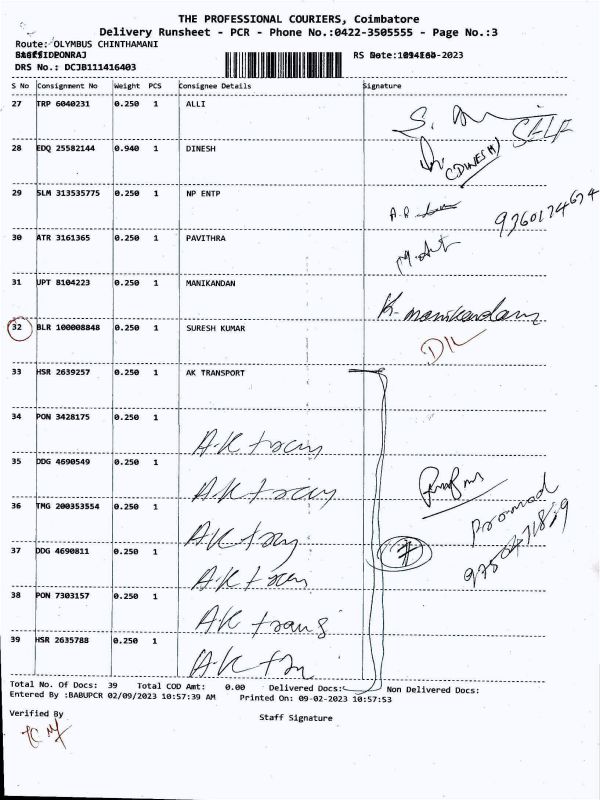 THE PROFESSIONAL COURIERS, Coimbatore
Delivery Runsheet - PCR - Phone No.:0422-3505555 - Page No.:3
Route: OLYMBUS CHINTHAMANI
RS Date: -2023
DRS No.: DCJB111416403
S No Consignment No Weight PCS Consignee Details Signature
27 TRP 6040231 0.250 1 ALLI
S.
SELF
28 EDQ 25582144 0.940 1 DINESH
(DINESH)
29 SLM 313535775 0.250 1 NP ENTP
A.R
9360174674
30 ATR 3161365 0.250 1 PAVITHRA
31 UPT 8104223 0.250 1 MANIKANDAN
K. manikandan
32 BLR 100008848 0.250 1 SURESH KUMAR
D/L
33 HSR 2639257 0.250 1 AK TRANSPORT
34 PON 3428175 0.250 1
AK trans
35 DDG 4690549 0.250 1
AK trans
36 TMG 200353554 0.250 1
AK trans
Pramod
37 DDG 4690811 0.250 1
7
AK trans
38 PON 7303157 0.250 1
AK trans
39 HSR 2635788 0.250 1
AK trn
Total No. Of Docs: 39 Total COD Amt: 0.00 Delivered Docs: Non Delivered Docs:
Entered By :BABUPCR 02/09/2023 10:57:39 AM Printed On: 09-02-2023 10:57:53
Verified By
Staff Signature